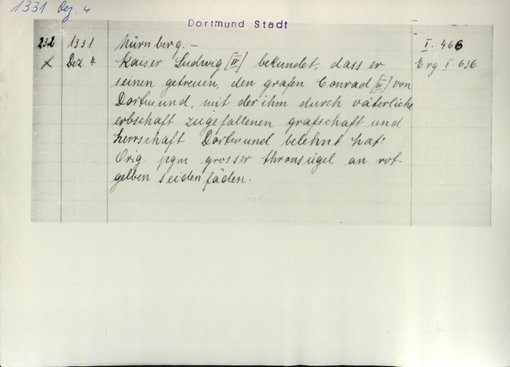 1331 Dez. 4
Dortmund Stadt
232 1331 Nürnberg. – I. 466
X Dez 4. Kaiser Ludwig [IV] bekundet, dass er Erg I 636.
seinen getreuen, den grafen Conrad [II] von
Dortmund, mit der ihm durch väterliche
erbschaft zugefallenen grafschaft und
herrschaft Dortmund belehnt hat.
Orig pgm grosser thronsiegel an rot-
gelben seidenfäden.